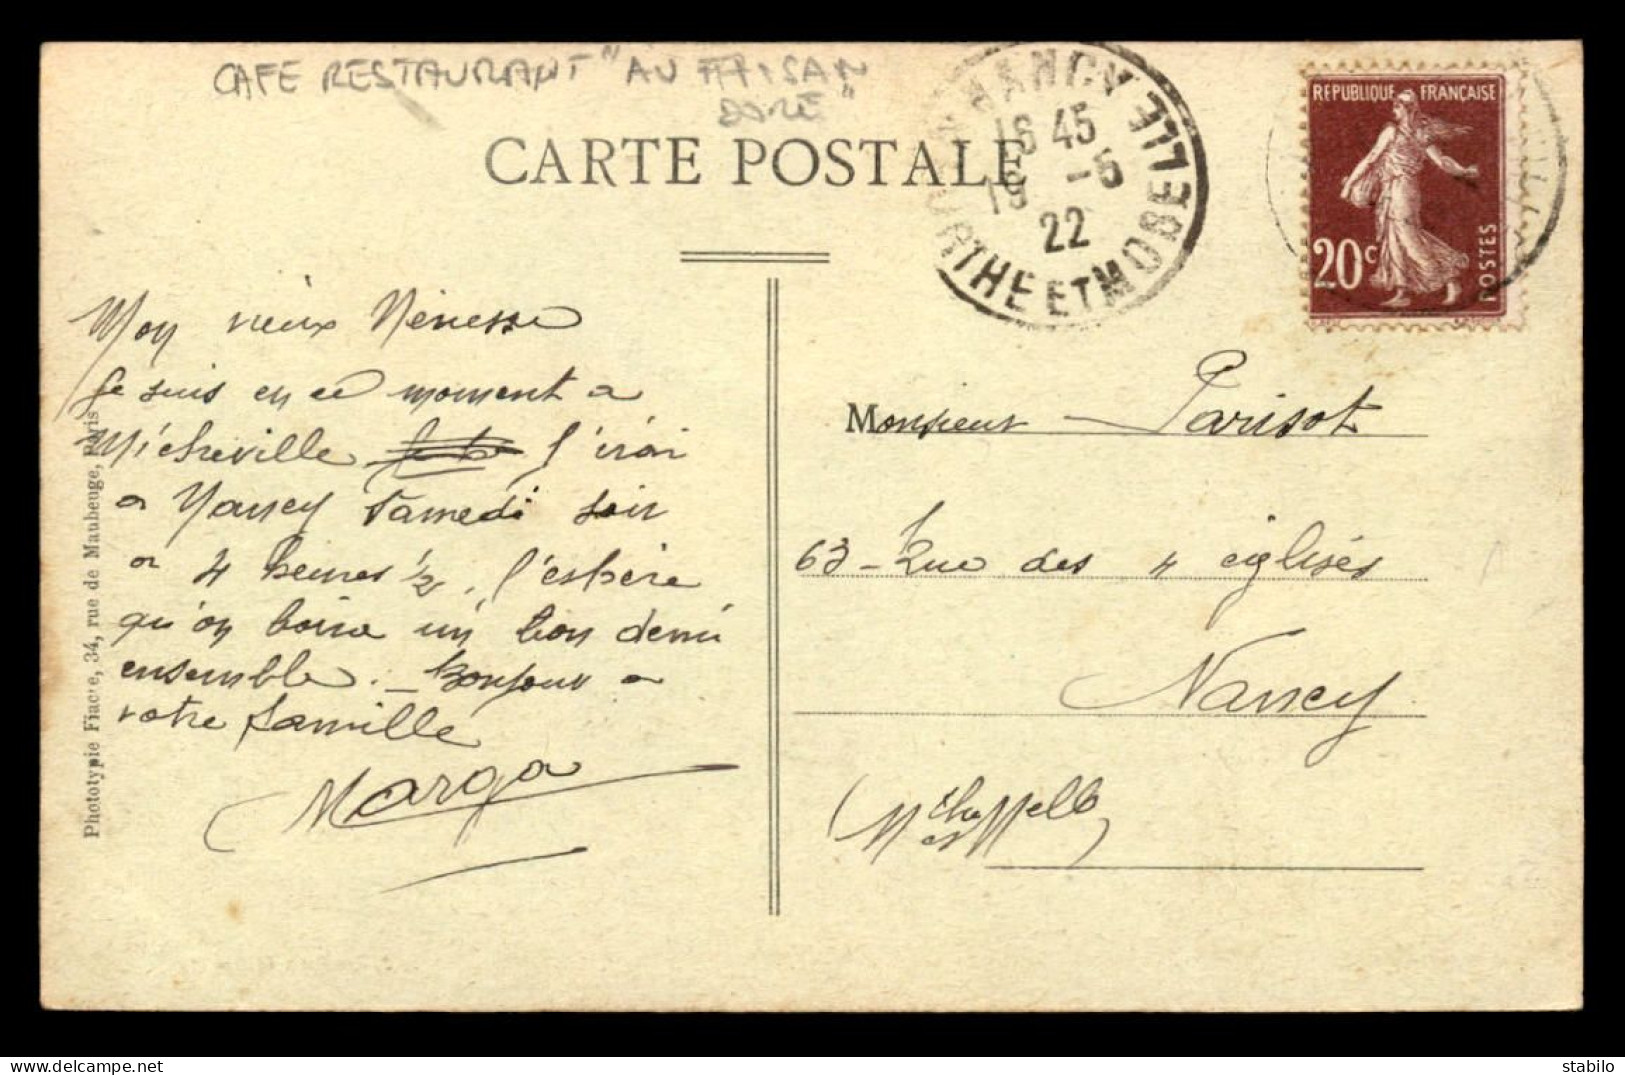 CAFE RESTAURANT "AU FAISAN
DORÉ"
CARTE POSTALE
NANCY
MEURTHE ET MOSELLE
16 45
19 -5
22
REPUBLIQUE FRANÇAISE
20c
POSTES
Mon vieux Nénesse
Je suis en ce moment a
Micheville J'irai
a Nancy Samedi soir
a 4 heures 1/2. J'espère
qu'on boira un bon demi
ensemble. - Bonjour a
votre famille
Marga
Phototypie Fiacre, 34, rue de Maubeuge, Paris
Monsieur - Parisot
63 - Rue des 4 églises
Nancy
delcampe-stabilo